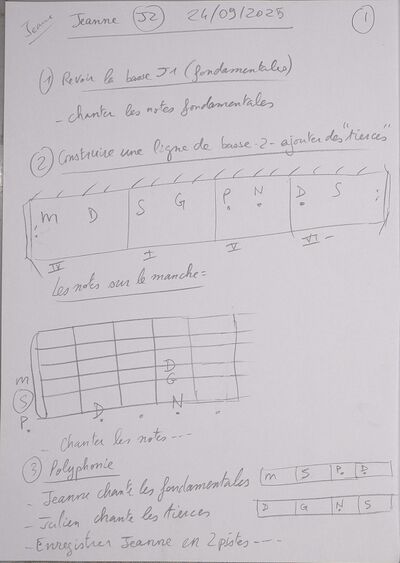 Jeanne
Jeanne J2 24/09/2025 1
① Revoir la basse J1 (fondamentales)
- chanter les notes fondamentales
② Construire une ligne de basse -2- ajouter des "tierces"
M D S G P N D S
IV I V VI-
Les notes sur le manche =
D
M G
S
P D N
- chanter les notes ---
③ Polyphonie
- Jeanne chante les fondamentales M S P D
- Julien chante les tierces D G N S
- Enregistrer Jeanne en 2 pistes ----